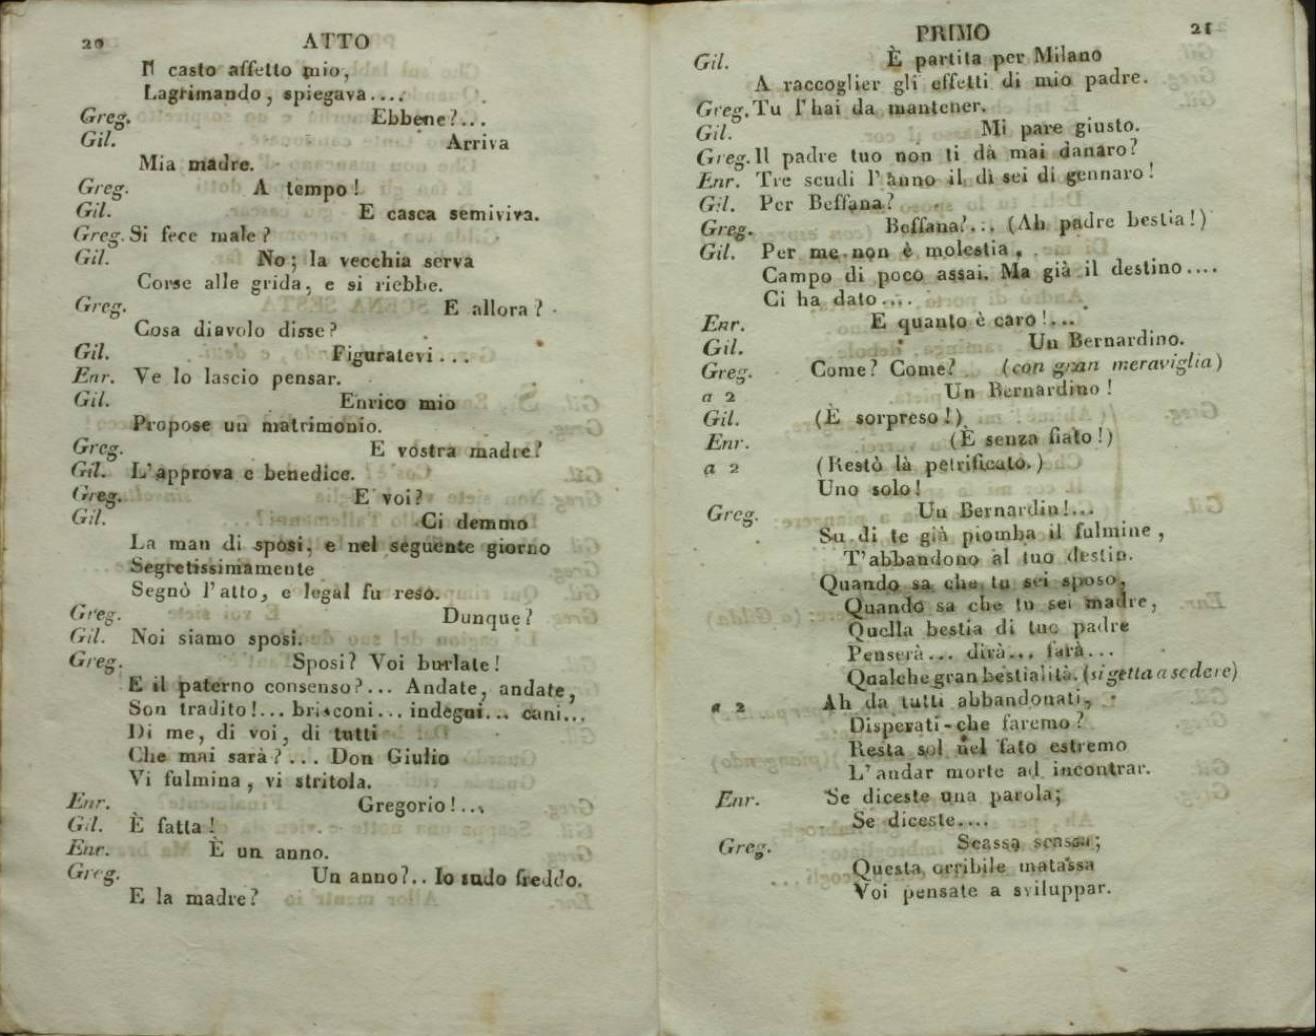 20 ATTO
Il casto affetto mio,
Lagrimando, spiegava....
Greg. Ebbene?...
Gil. Arriva
Mia madre.
Greg. A tempo!
Gil. E casca semiviva.
Greg. Si fece male?
Gil. No; la vecchia serva
Corse alle grida, e si riebbe.
Greg. E allora?
Cosa diavolo disse?
Gil. Figuratevi...
Enr. Ve lo lascio pensar.
Gil. Enrico mio
Propose un matrimonio.
Greg. E vostra madre?
Gil. L'approva e benedice.
Greg. E voi?
Gil. Ci demmo
La man di sposi, e nel seguente giorno
Segretissimamente
Segnò l'atto, e legal fu reso.
Greg. Dunque?
Gil. Noi siamo sposi.
Greg. Sposi? Voi burlate!
E il paterno consenso?... Andate, andate,
Son tradito!... brisconi... indegni... cani...
Di me, di voi, di tutti
Che mai sarà?... Don Giulio
Vi fulmina, vi stritola.
Enr. Gregorio!...
Gil. È fatta!
Enr. È un anno.
Greg. Un anno?.. Io sudo freddo.
E la madre?
PRIMO 21
Gil. È partita per Milano
A raccoglier gli effetti di mio padre.
Greg. Tu l'hai da mantener.
Gil. Mi pare giusto.
Greg. Il padre tuo non ti dà mai danaro?
Enr. Tre scudi l'anno il dì sei di gennaro!
Gil. Per Beffana?
Greg. Beffana?... (Ah padre bestia!)
Gil. Per me non è molestia,
Campo di poco assai. Ma già il destino....
Ci ha dato....
Enr. E quanto è caro!...
Gil. Un Bernardino.
Greg. Come? Come? (con gran meraviglia)
a 2 Un Bernardino!
Gil. (È sorpreso!)
Enr. (È senza fiato!)
a 2 (Restò là petrificato.)
Uno solo!
Greg. Un Bernardin!...
Su di te già piomba il fulmine,
T'abbandono al tuo destin.
Quando sa che tu sei sposo,
Quando sa che tu sei madre,
Quella bestia di tuo padre
Penserà... dirà... farà...
Qualche gran bestialità. (si getta a sedere)
a 2 Ah da tutti abbandonati,
Disperati-che faremo?
Resta sol nel fato estremo
L'andar morte ad incontrar.
Enr. Se diceste una parola;
Se diceste....
Greg. Scassa scassa;
Questa orribile matassa
Voi pensate a sviluppar.